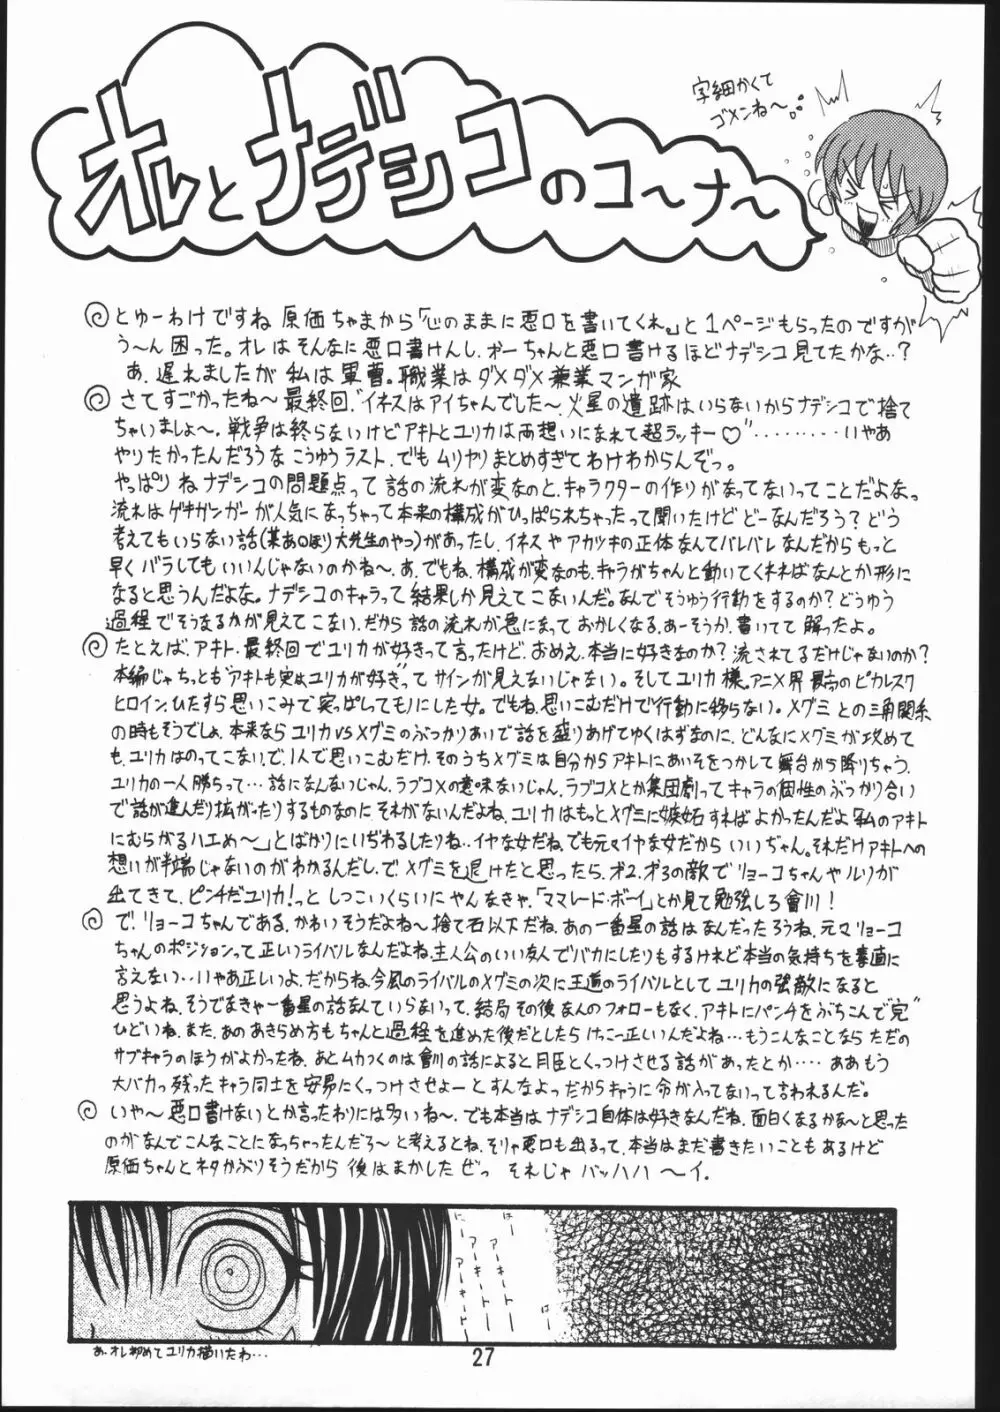 字細かくて
ゴメンね〜
オレとナデシコのコ〜ナ〜
とゆーわけですね 原価ちゃまから「心のままに悪口を書いてくれ。」と1ページもらったのですが
う〜ん困った。オレはそんなに悪口書けんし、かーちゃんと悪口書けるほどナデシコ見てたかな‥?
あ、遅れましたが私は軍曹。職業はダメダメ兼業マンガ家
さてすごかったね〜最終回、“イネスはアイちゃんでした〜火星の遺跡はいらないからナデシコで捨て
ちゃいましょ〜、戦争は終らないけどアキトとユリカは両想いになれて超ラッキー♡”‥‥‥‥‥いやあ
やりたかったんだろうなこうゆうラスト、でもムリヤリまとめすぎてわけわからんぞっ。
やっぱりねナデシコの問題点って話の流れが変なのと、キャラクターの作りがなってないってことだよなっ
流れはゲキガンガーが人気になっちゃって本来の構成がひっぱられちゃったって聞いたけどどーなんだろう?どう
考えてもいらない話(某あ○ほり大先生のやつ)があったし、イネスやアカツキの正体なんてバレバレなんだからもっと
早くバラしてもいいんじゃないのかね〜。あ、でもね、構成が変なのも、キャラがちゃんと動いてくれればなんとか形に
なると思うんだよな。ナデシコのキャラって結果しか見えてこないんだ。なんでそうゆう行動をするのか?どうゆう
過程でそうなるかが見えてこない、だから話の流れが急になっておかしくなる、あーそうか、書いてて解ったよ。
たとえば、アキト、最終回でユリカが好きって言ったけど、おめえ、本当に好きなのか?流されてるだけじゃないのか?
本編じゃちっとも“アキトも実はユリカが好き”ってサインが見えないじゃない。そしてユリカ様。アニメ界最高のピカレスク
ヒロイン、ひたすら思いこみで突っぱしってモノにした女。でもね、思いこむだけで行動に移らない。メグミとの三角関係
の時もそうでしょ、本来ならユリカVSメグミのぶっかりあいで話を盛りあげてゆくはずなのに、どんなにメグミが攻めて
も、ユリカはのってこない、で、1人で思いこむだけ、そのうちメグミは自分からアキトにあいそをつかして舞台から降りちゃう、
ユリカの一人勝ちって…話になんないじゃん、ラブコメの意味ないじゃん、ラブコメとか集団劇ってキャラの個性のぶっかり合い
で話が進んだり拡がったりするものなのにそれがないんだよね、ユリカはもっとメグミに嫉妬すればよかったんだよ「私のアキト
にむらがるハエめ〜」とばかりにいぢわるしたりね‥イヤな女だね、でも元々イヤな女だからいいぢゃん。それだけアキトへの
想いが半端じゃないのがわかるんだし、で、メグミを退けたと思ったら、才2、才3の敵でリョーコちゃんやルリが
出てきて、ピンチだユリカ!っとしつこいくらいにやんなきゃ、「ママレード・ボーイ」とか見て勉強しろ會川!
で、リョーコちゃんである、かわいそうだよね〜捨て石以下だね、あの一番星の話はなんだったろうね、元々リョーコ
ちゃんのポジションって正しいライバルなんだよね、主人公のいい友人でバカにしたりもするけれど本当の気持ちを素直に
言えない‥‥いやあ正しいよ、だからね、今風のライバルのメグミの次に王道のライバルとしてユリカの強敵になると
思うよね、そうでなきゃ一番星の話なんていらないって、結局その後なんのフォローもなく、アキトにパンチをぶちこんで“完”
ひどいね、また、あのあきらめ方もちゃんと過程を進めた後だとしたらけっこー正しいんだよね…もうこんなことならただの
サブキャラのほうがよかったね、あとムカつくのは會川の話によると月臣とくっつけさせる話があったとか‥‥ああもう
大バカっ残ったキャラ同士を安易にくっつけさせよーとすんなよっだからキャラに命が入ってないって言われるんだ。
いや〜悪口書けないとか言ったわりには多いね〜、でも本当はナデシコ自体は好きなんだね、面白くなるかな〜と思った
のがなんでこんなことになっちゃったんだろ〜と考えるとね、そりゃ悪口も出るって、本当はまだ書きたいこともあるけど
原価ちゃんとネタかぶりそうだから後はまかしたぜっ それじゃ バッハハ〜イ.
あ、オレ初めてユリカ描いたわ…
27